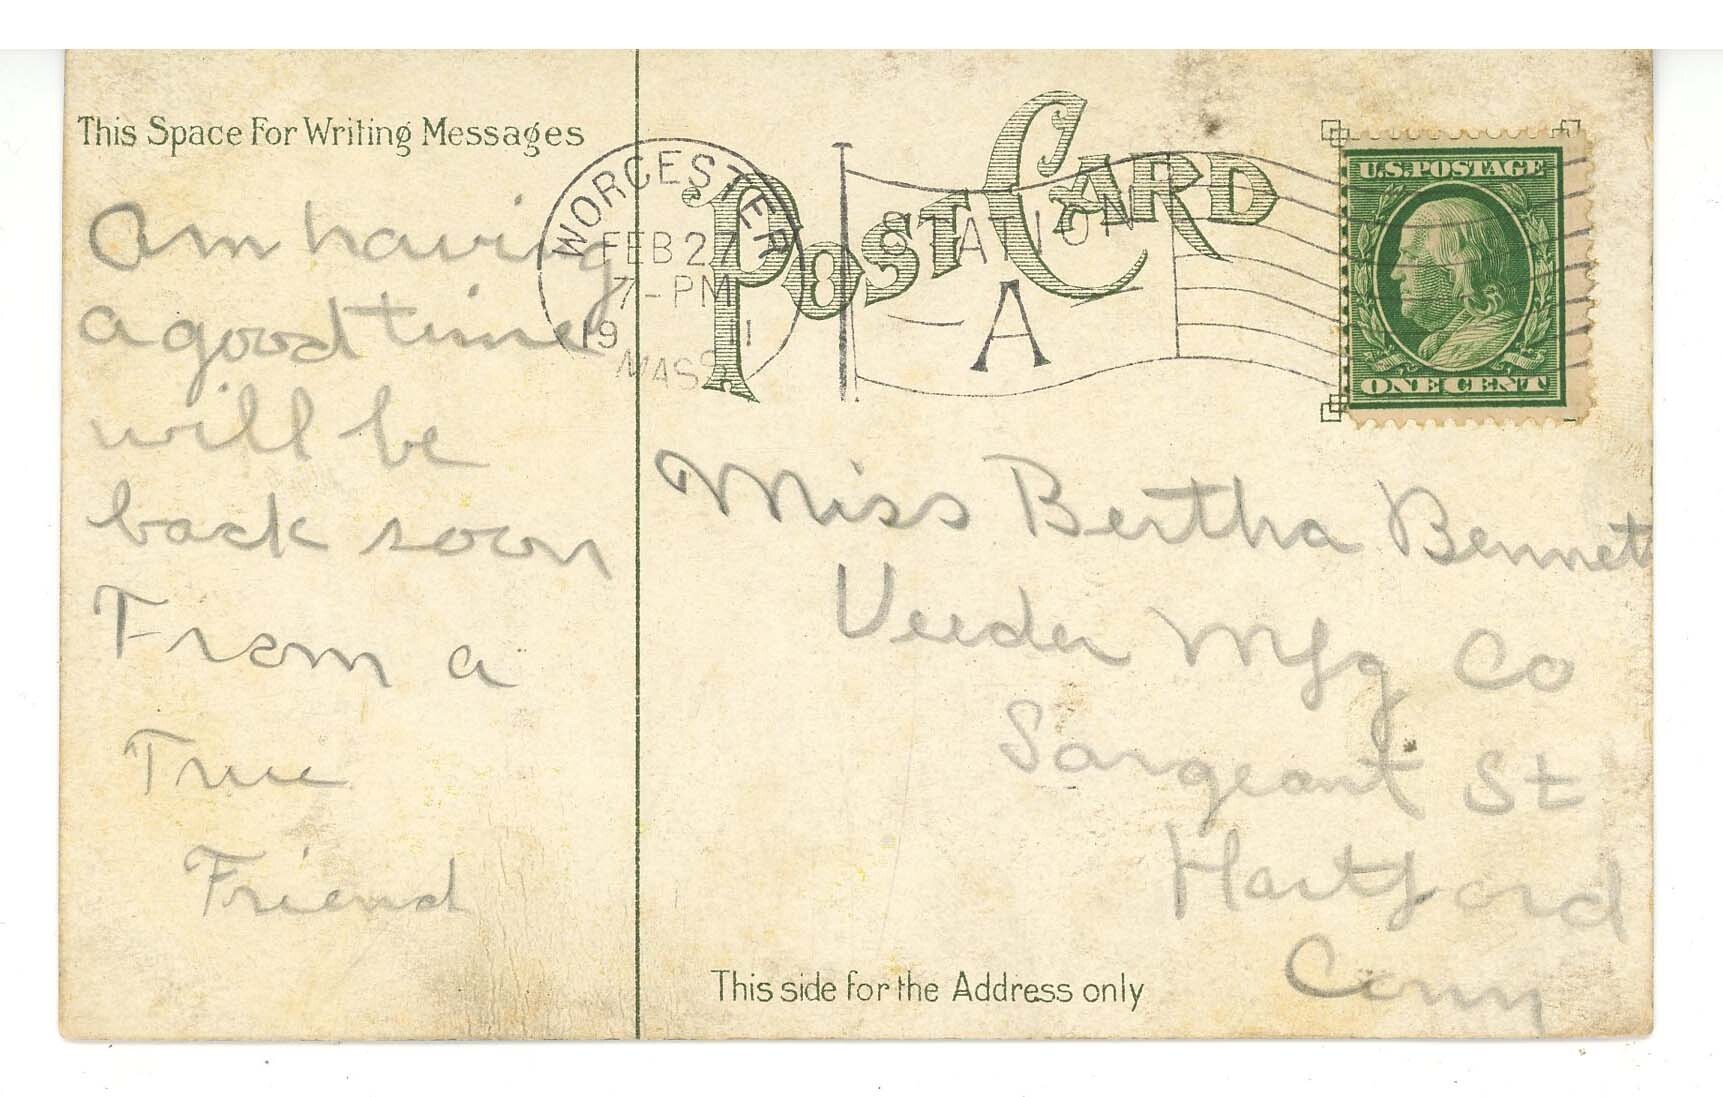 This Space For Writing Messages
Am having
a good time
will be
back soon
From a
True
Friend
POST CARD
WORCESTER
FEB 27
7-PM
1911
MASS.
STATION
A
U.S. POSTAGE
ONE CENT
Miss Bertha Bennet
Veeder Mfg Co
Sargeant St
Hartford
Conn
This side for the Address only